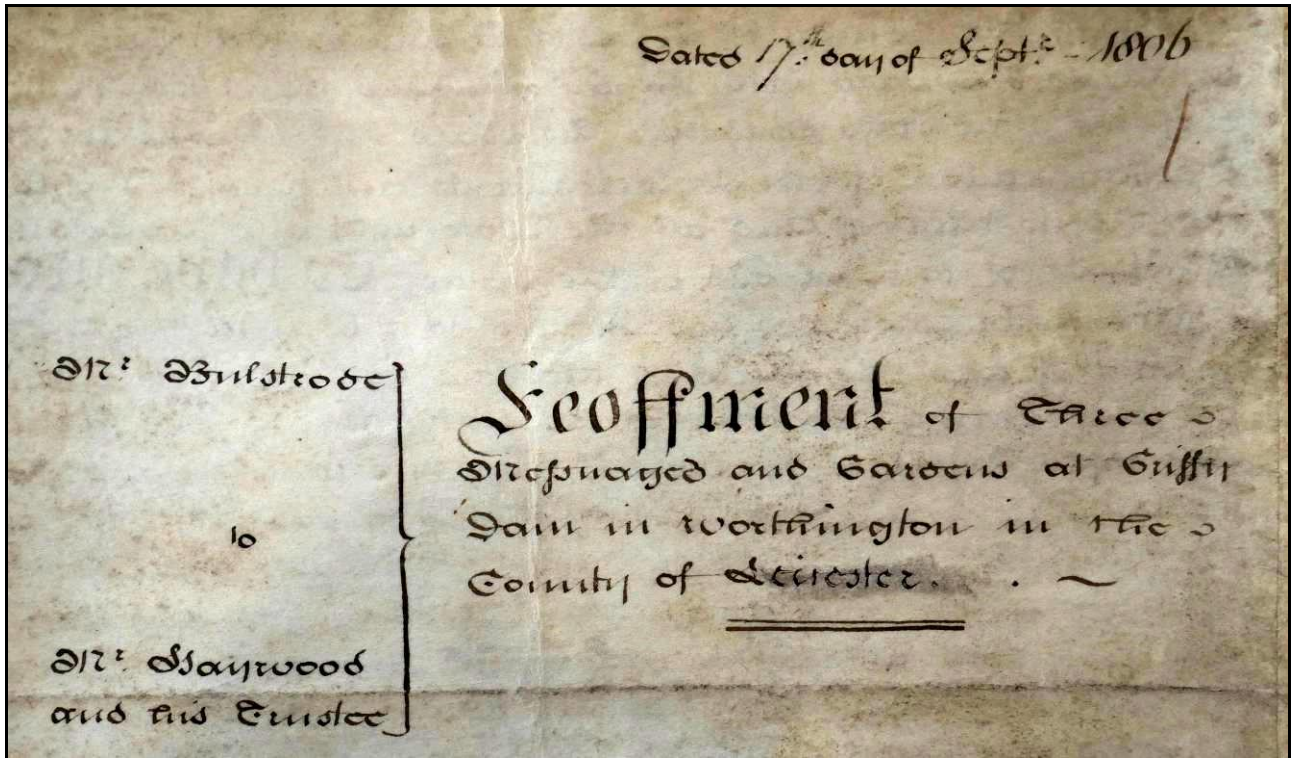 Dated 17th day of Septr. 1806
Mr. Bulstrode
to
Mr. Haywood
and his Trustee
Feoffment of Three
Messuages and Gardens at Griffy
Dam in Worthington in the
County of Leicester.